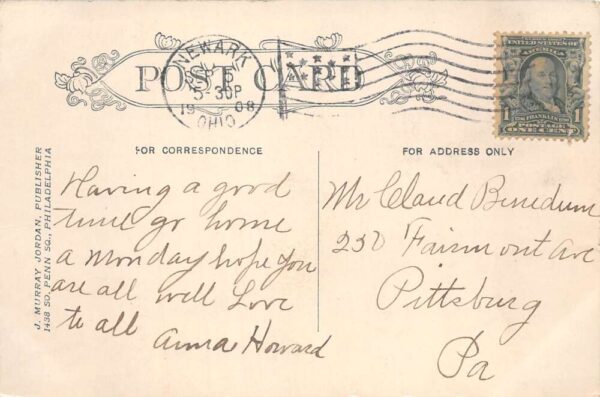 POST CARD
NEWARK
5-30P
1908
OHIO
UNITED STATES OF AMERICA
1 1
FRANKLIN
POSTAGE
ONE CENT
FOR CORRESPONDENCE
FOR ADDRESS ONLY
J. MURRAY JORDAN, PUBLISHER
1438 SO. PENN SQ., PHILADELPHIA
Having a good
time go home
a Monday hope you
are all well Love
to all
Anna Howard
Mr Claud Benedum
Fairmont Ave
Pittsburg
Pa